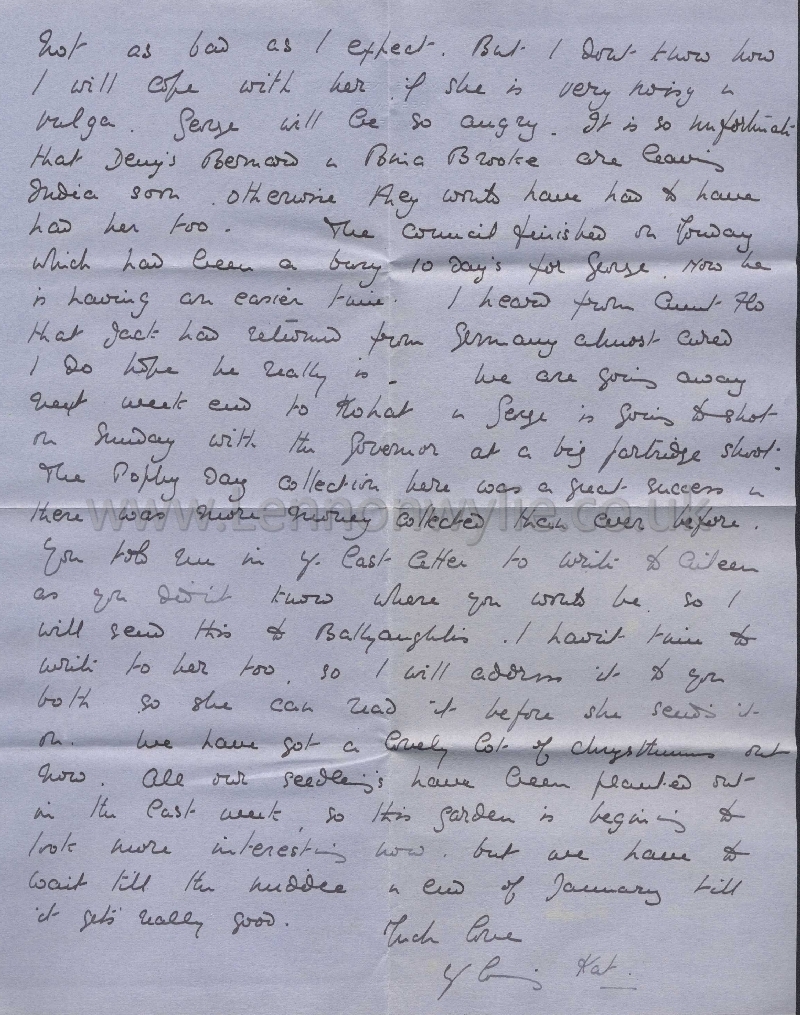 not as bad as I expect. But I dont know how
I will cope with her if she is very noisy n
vulga. George will be so angry. It is so unfortunate
that Denys Bernard n Brooke are leaving
India soon. otherwise they would have had to have
had her too. The Council finished on Monday
which had been a busy 10 day's for George. Now he
is having an easier time. I heard from Aunt Flo
that Jack had returned from Germany almost cured
I do hope he really is. We are going away
next week end to Kohat n George is going to shoot
on Sunday with the Governor at a big partridge shoot.
The Poppy Day collection here was a great success n
there was more money collected than ever before.
You told me in yr last letter to write to Aileen
as you didn't know where you would be. so I
will send this to Ballyaughlis. I havn't time to
write to her too, so I will address it to you
both so she can read it before she sends it
on. We have got a lovely lot of chrysthmums out
now. All our seedling's have been planted out
in the last week, so this garden is begining to
look more interesting now. but we have to
wait till the middle n end of January till
it gets really good.
Much love
yr loving Kat.
www.lennonwylie.co.uk